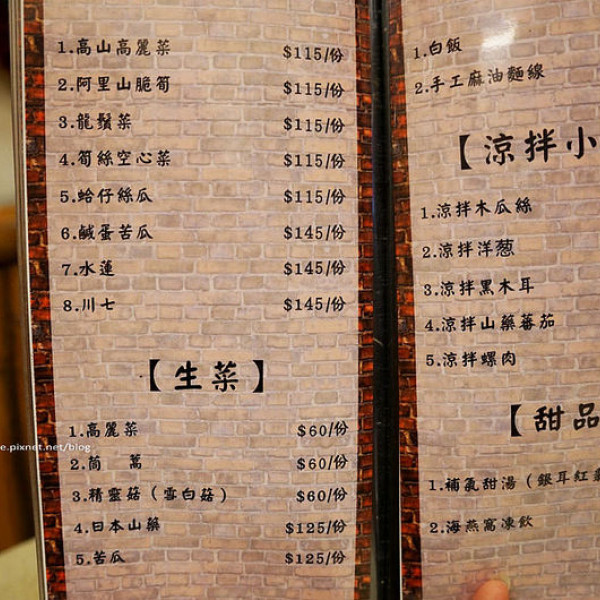 1.高山高麗菜 $115/份
2.阿里山脆筍 $115/份
3.龍鬚菜 $115/份
4.筍絲空心菜 $115/份
5.蛤仔絲瓜 $115/份
6.鹹蛋苦瓜 $145/份
7.水蓮 $145/份
8.川七 $145/份
【生菜】
1.高麗菜 $60/份
2.茼 蒿 $60/份
3.精靈菇（雪白菇） $60/份
4.日本山藥 $125/份
5.苦瓜 $125/份
e.pixnet.net/blog
1.白飯
2.手工麻油麵線
【涼拌小
1.涼拌木瓜絲
2.涼拌洋蔥
3.涼拌黑木耳
4.涼拌山藥蕃茄
5.涼拌螺肉
【甜品
1.補氣甜湯（銀耳紅棗
2.海燕窩凍飲